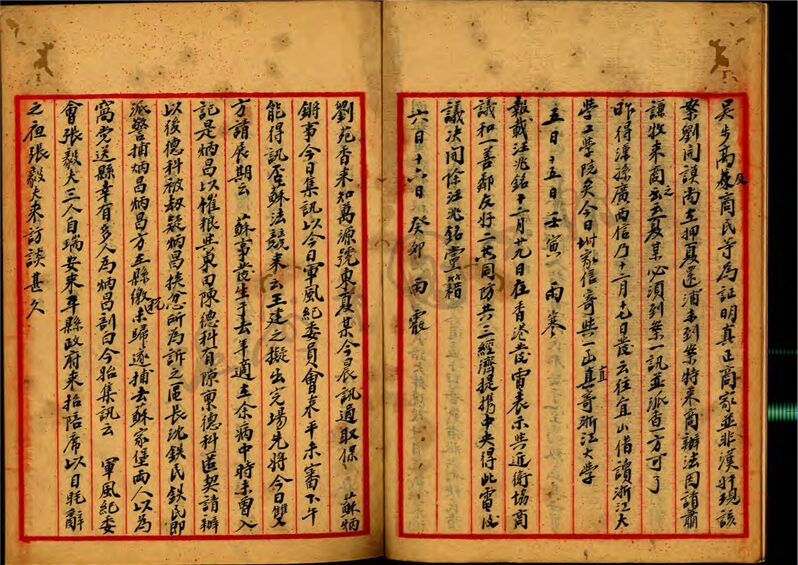 吴步萬及蔑商民等為証明真正商家並非漢奸現該
案劉開謨尚在押夏還浦未到案特來商辦法因請蕭
謙牧來商之云夏某必須到案一訊並派查一方可了
昨得濂孫廣西信乃十二月十七日發云往宜山借讀浙江大
學工學院矣今日坿家信寄與一函直寄浙江大學
五日十五日壬寅 雨寒
報載汪兆銘十二月廿九日在香港發電表示與近衛協商
議和一善鄰友好二共同防共三經濟提携中央得此電後
議决開除汪兆銘黨籍
六日十六日 癸卯 雨霰
劉苑香來知萬源號東夏某今晨訊過取保 蘇炳
鏘事今日集訊以今日軍風紀委員會來平未審下午
能得訊否蘇法競來云王建之擬出完場先將今日雙
方請展期云 蘇事發生于去年適在余病中時未曾入
記是炳昌以催租與東田陳德科有隙票德科匿契請辦
以後德科被刼疑炳昌挾忿所為訴之區長沈鉄民鉄民即
派警捕炳昌炳昌方在縣繳屯未歸遂捕去蘇家堡兩人以為
窩党送縣幸有多人為炳昌剖白今始集訊云 軍風紀委
會張毅夫三人自瑞安來平縣政府柬招陪席以目眊辭
之夜張毅夫來訪談甚久